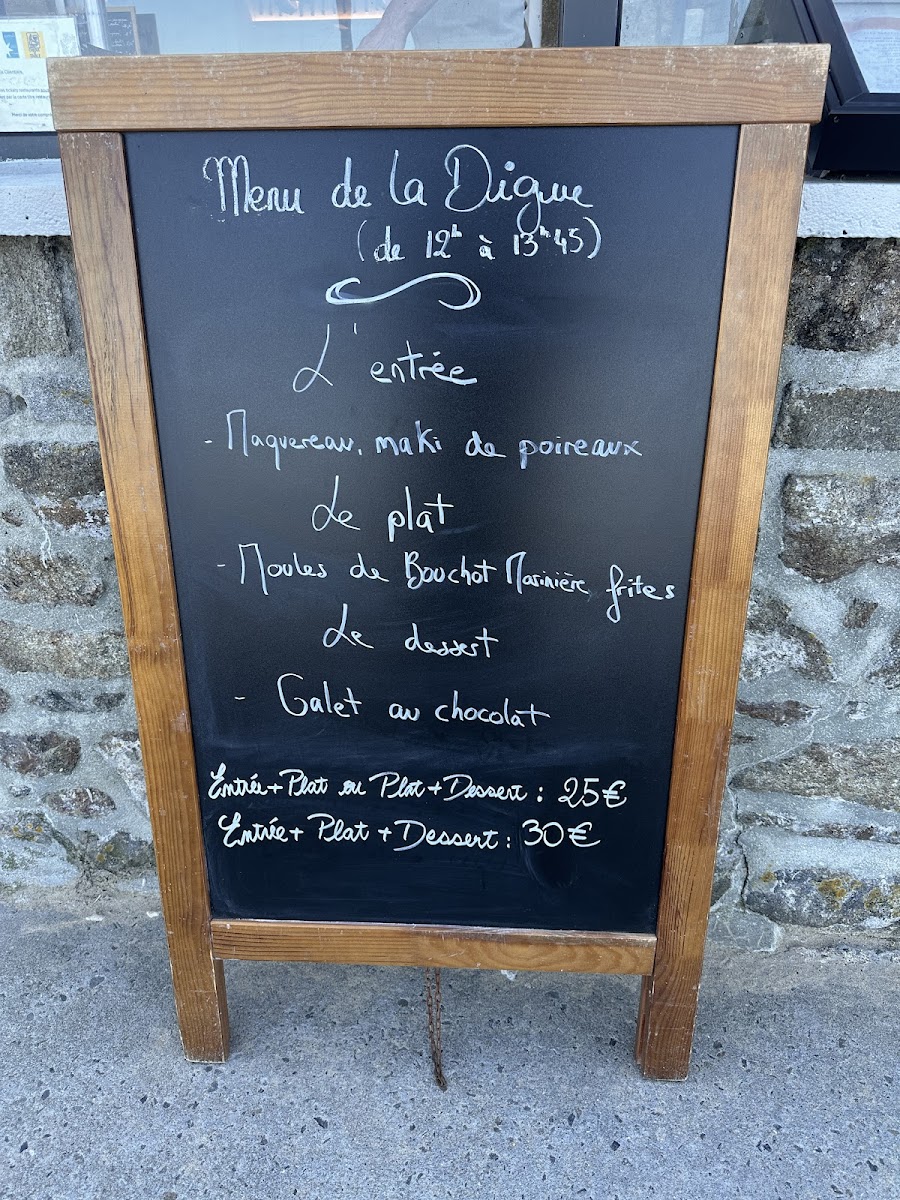 Menu de la Digue
(de 12h à 13h45)
L'entrée
- Maquereau, maki de poireaux
Le plat
- Moules de Bouchot Marinière, frites
Le dessert
- Galet au chocolat
Entrée + Plat ou Plat + Dessert : 25€
Entrée + Plat + Dessert : 30€